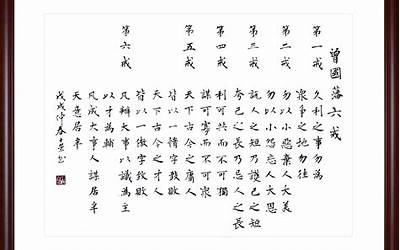 曾國藩六戒
第一戒
久利之事勿為
眾爭之地勿往
第二戒
勿以小惡棄人大美
勿以小怨忘人大恩
第三戒
說人之短乃護己之短
夸己之長乃忌人之長
第四戒
利可共而不可獨
謀可寡而不可眾
第五戒
天下古今之庸人
皆以一惰字致敗
天下古今之才人
皆以一傲字致敗
第六戒
凡辦大事以識為主
以才為輔
凡成大事人謀居半
天意居半
戊戌仲春